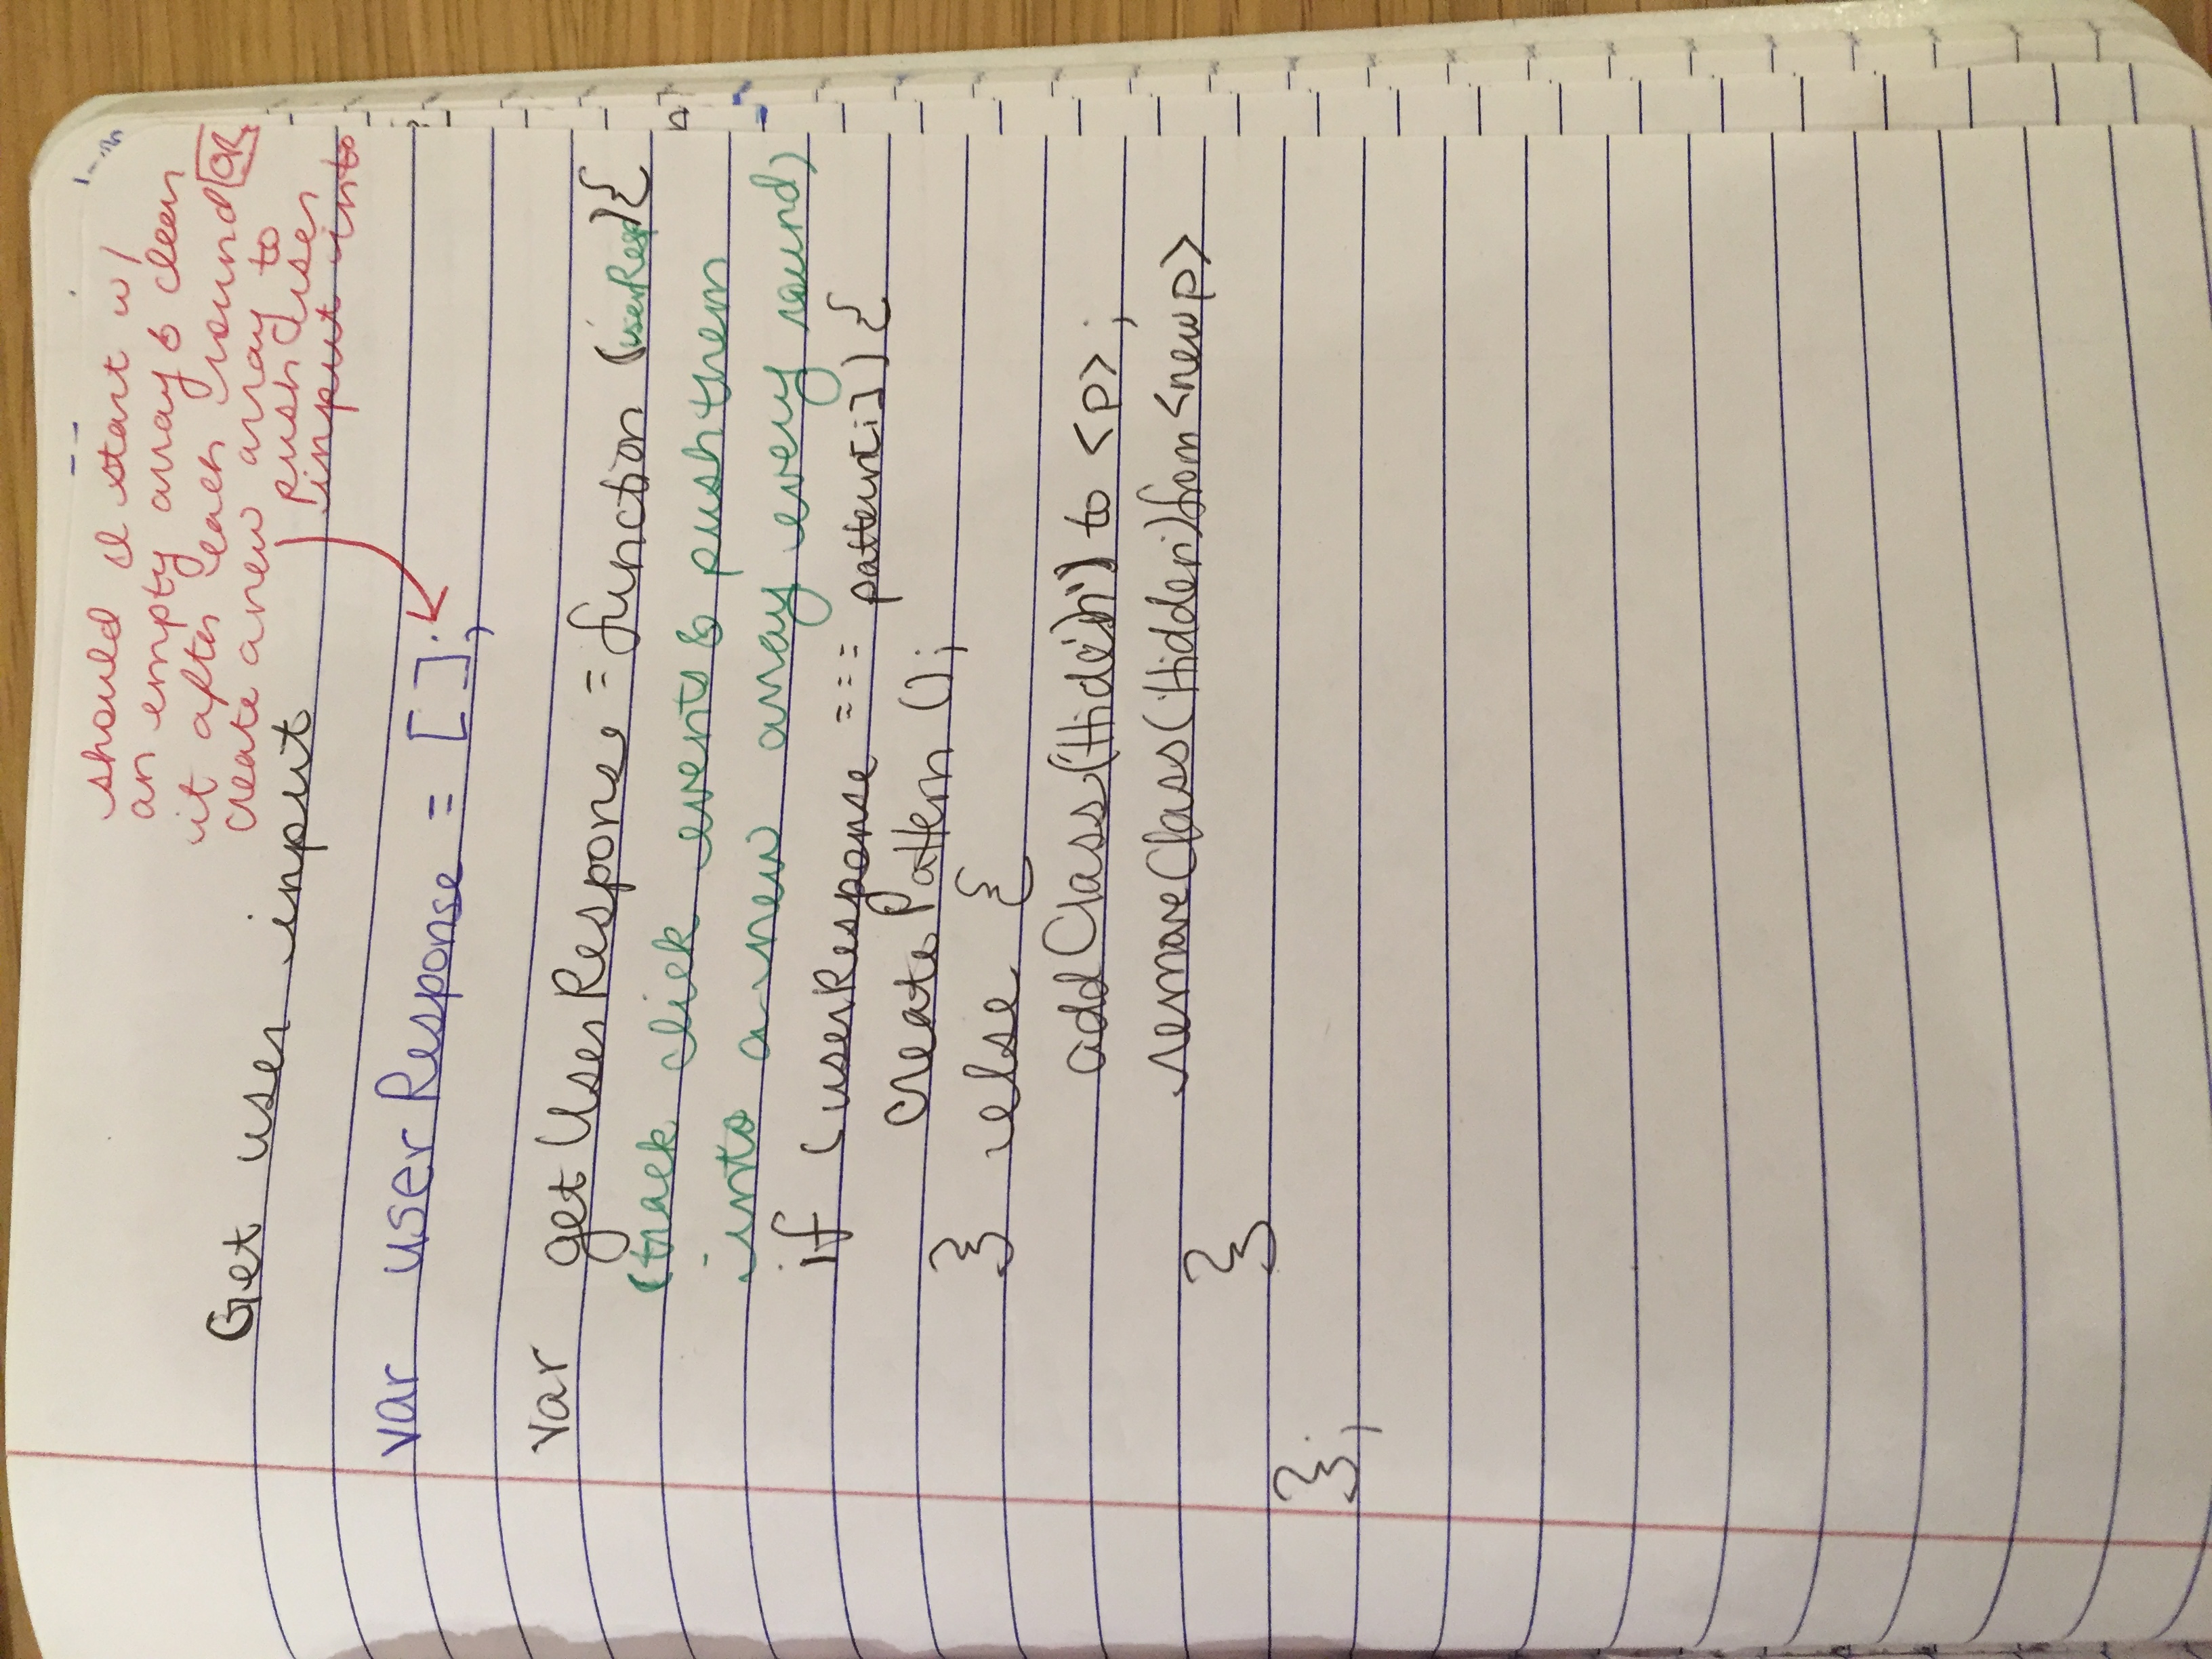 should I start w/
an empty array & clear
it after each round OR
create a new array to
push user
input into
Get user input
var userResponse = [];
var getUserResponse = function (userResp){
(track click events & push them
into a new array every round)
if (userResponse === pattern[i]) {
createPattern ();
} else {
addClass( to <p>;
removeClass('Hidden') from <new p>
}
};